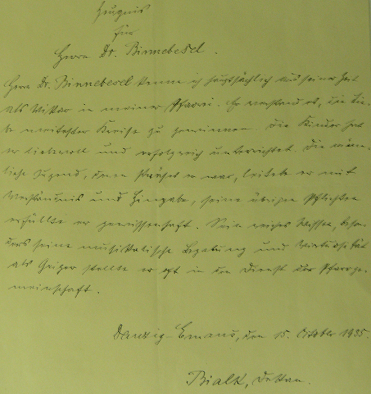 Zeugnis
für
Herrn Dr. Binnebesel.
Herrn Dr. Binnebesel kenne ich hauptsächlich aus seiner Zeit
als Vikar in meiner Pfarrei. Er verstand es, die Lie-
be weitester Kreise zu gewinnen. Die Kinder hat
er liebevoll und erfolgreich unterrichtet. Die männ-
liche Jugend, deren Präses er war, leitete er mit
Verständnis und Hingabe, seine übrigen Pflichten
erfüllte er gewissenhaft. Sein reiches Wissen, beson-
ders seine musikalische Begabung und Virtuosität
als Geiger stellte er oft in den Dienst der Pfarrge-
meinschaft.
Danzig-Emaus, den 15. October 1935.
Bialk, Dekan.